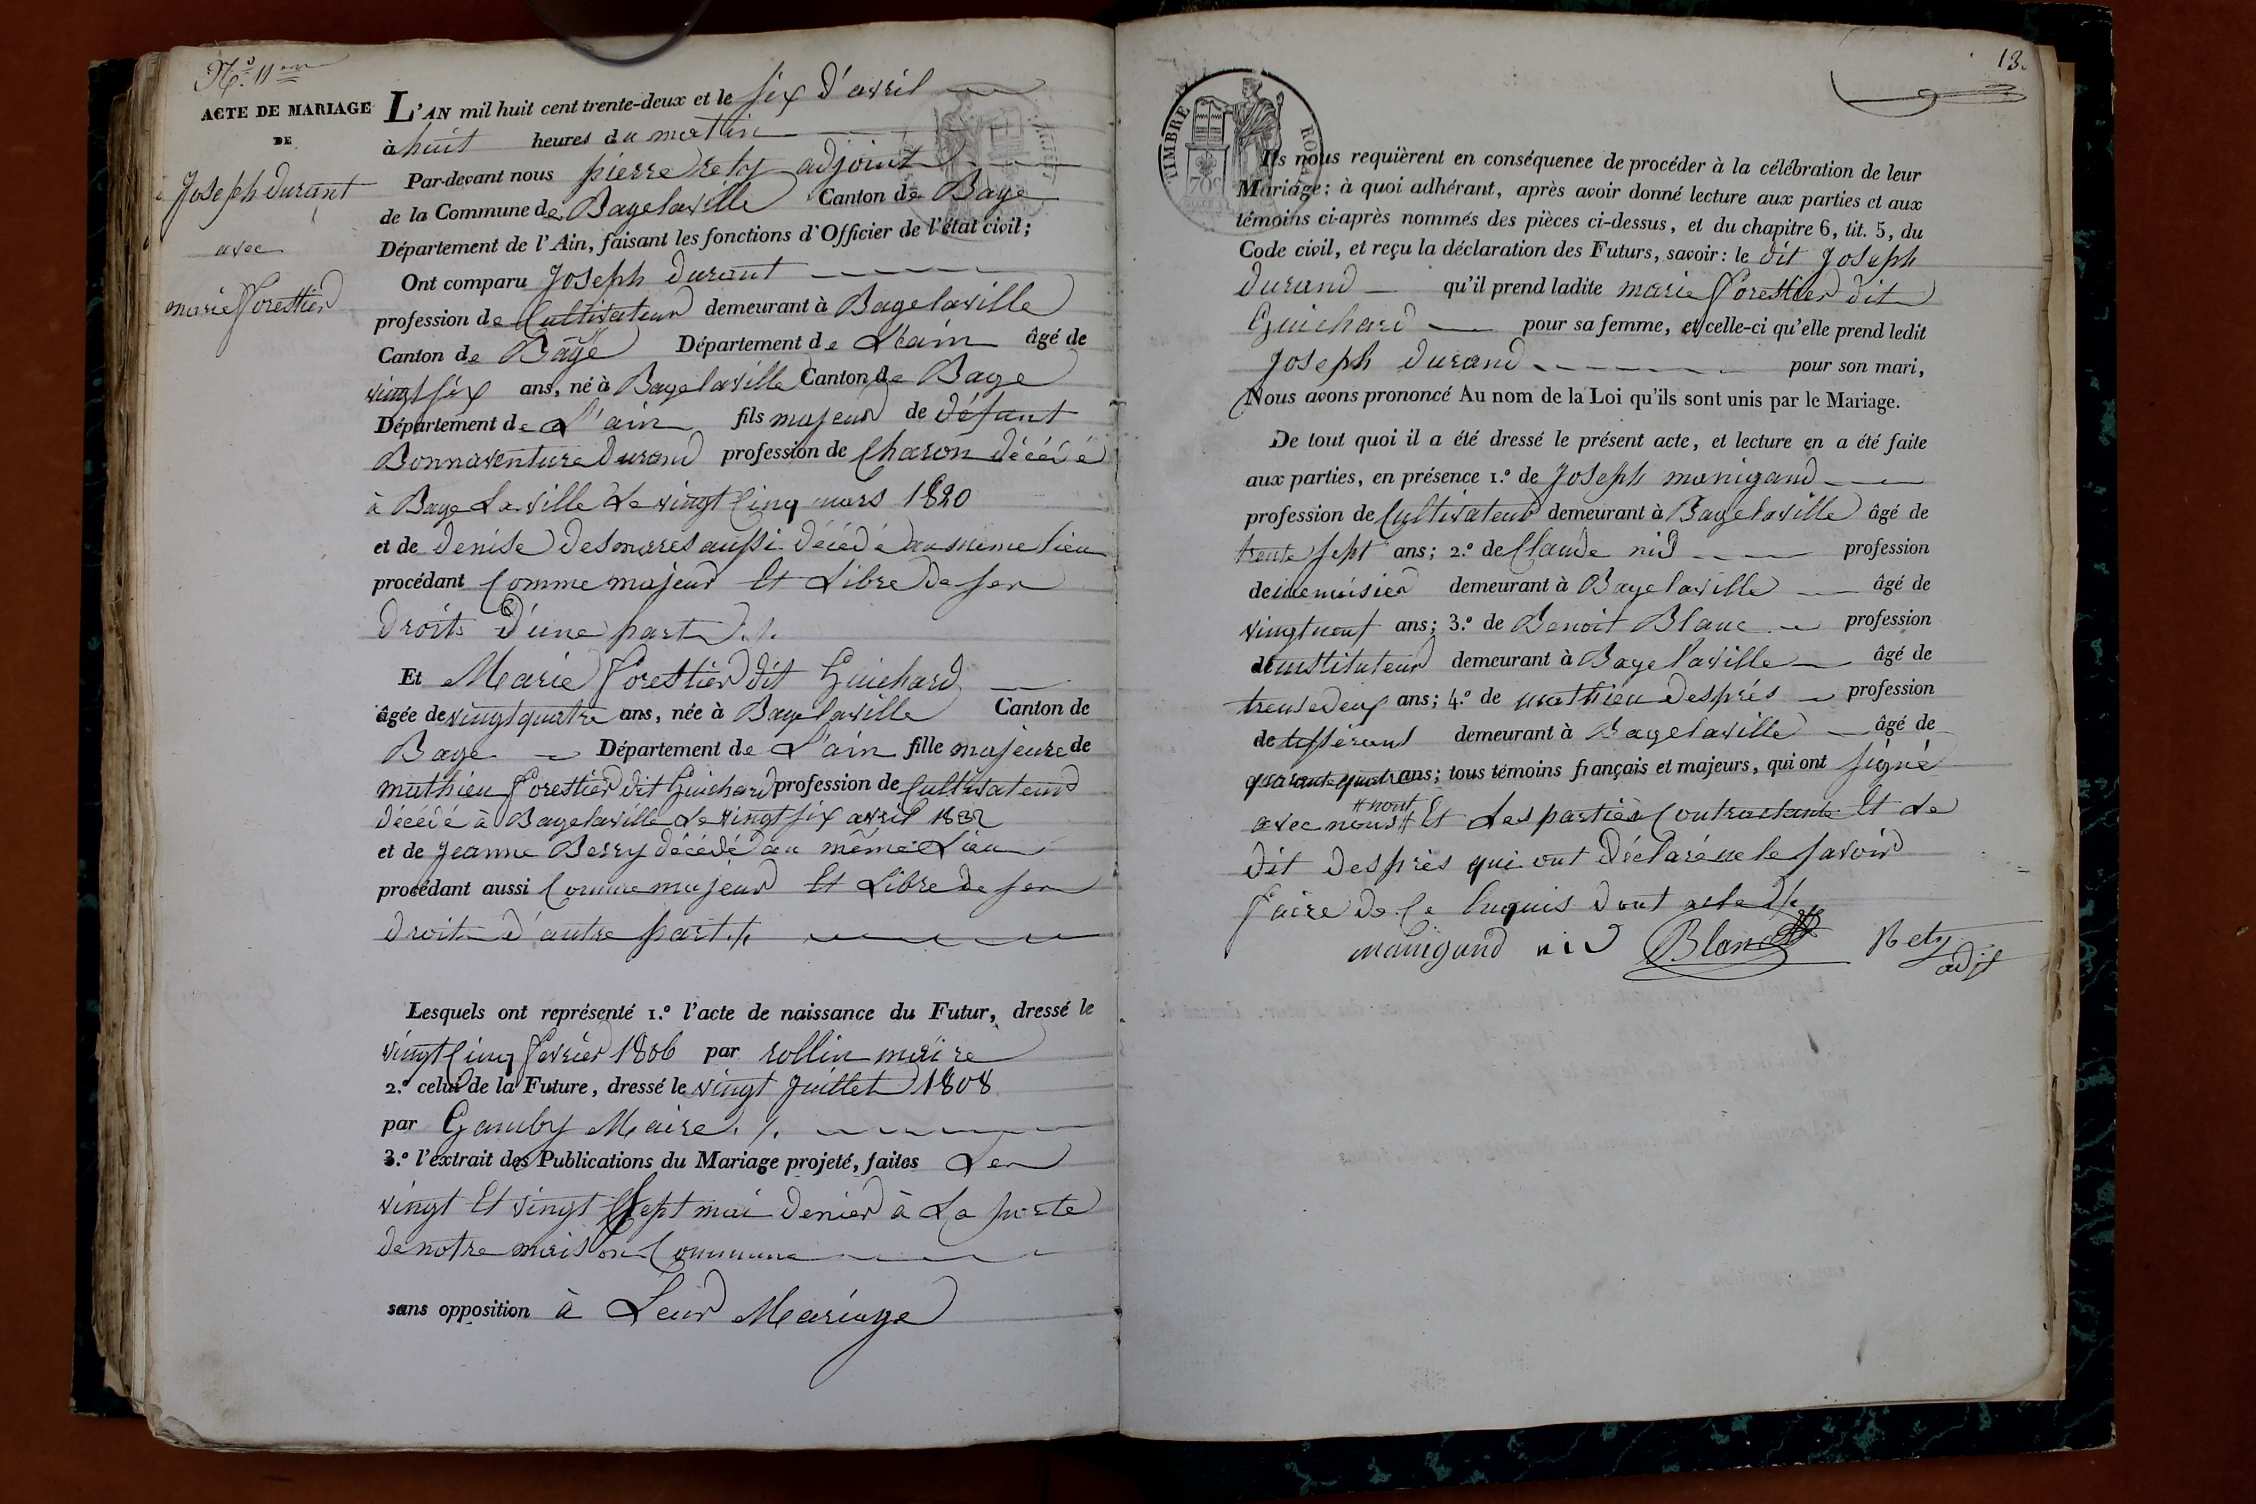 N.o 11em
ACTE DE MARIAGE
DE
Joseph durant
avec
marie Forestier
L'AN mil huit cent trente-deux et le six d'avril
à huit heures du matin
Par-devant nous pierre rety adjoint
de la Commune de Bagelaville Canton de Bage
Département de l'Ain, faisant les fonctions d'Officier de l'état civil;
Ont comparu Joseph durant
profession de Cultivateur demeurant à Bagelaville
Canton de Bage Département de L'ain âgé de
vingt six ans, né à Bagelaville Canton de Bage
Département de L'ain fils majeur de défunt
Bonnaventure durand profession de Charon décédé
à Bage Laville Le vingt Cinq mars 1820
et de denise desmares aussi décédé au même lieu
procédant Comme majeur Et Libre de ser
droits d'une part ./.
Et Marie Forestier dit Guichard
âgée de vingt quatre ans, née à Bagelaville Canton de
Bage Département de L'ain fille majeure de
mathieu Forestier dit Guichard profession de Cultivateur
décédé à Bagelaville Le vingt six avril
et de Jeanne Berry décédé au même Lieu
procédant aussi Comme majeur Et Libre de ser
droits d'autre part ./.
Lesquels ont représenté 1.o l'acte de naissance du Futur, dressé le
vingt Cinq Fevrier 1806 par rollin maire
2.o celui de la Future, dressé le vingt Juillet 1808
par Gamby Maire ./.
3.o l'extrait des Publications du Mariage projeté, faites Les
vingt Et vingt Sept mai denier à La porte
de notre maison Commune
sans opposition à Leur Mariage
13.
TIMBRE ROYAL
70c
Ils nous requièrent en conséquence de procéder à la célébration de leur
Mariage: à quoi adhérant, après avoir donné lecture aux parties et aux
témoins ci-après nommés des pièces ci-dessus, et du chapitre 6, tit. 5, du
Code civil, et reçu la déclaration des Futurs, savoir: le dit Joseph
durand qu'il prend ladite marie Forestier dit
Guichard pour sa femme, et celle-ci qu'elle prend ledit
Joseph durand pour son mari,
Nous avons prononcé Au nom de la Loi qu'ils sont unis par le Mariage.
De tout quoi il a été dressé le présent acte, et lecture en a été faite
aux parties, en présence 1.o de Joseph manigand
profession de Cultivateur demeurant à Bagelaville âgé de
trente sept ans; 2.o de Claude nid profession
de menuisier demeurant à Bagelaville âgé de
vingt neuf ans; 3.o de Benoit Blanc profession
de instituteur demeurant à Bagelaville âgé de
trente deux ans; 4.o de mathieu després profession
de tisserand demeurant à Bagelaville âgé de
quarante quatre ans; tous témoins français et majeurs, qui ont signé
# nont
avec nous # Et Les parties Contractante Et Le
dit després qui ont déclaré ne le savoir
Faire de Ce Enquis dont acte ./.
manigand nid Blanc Rety
adjt